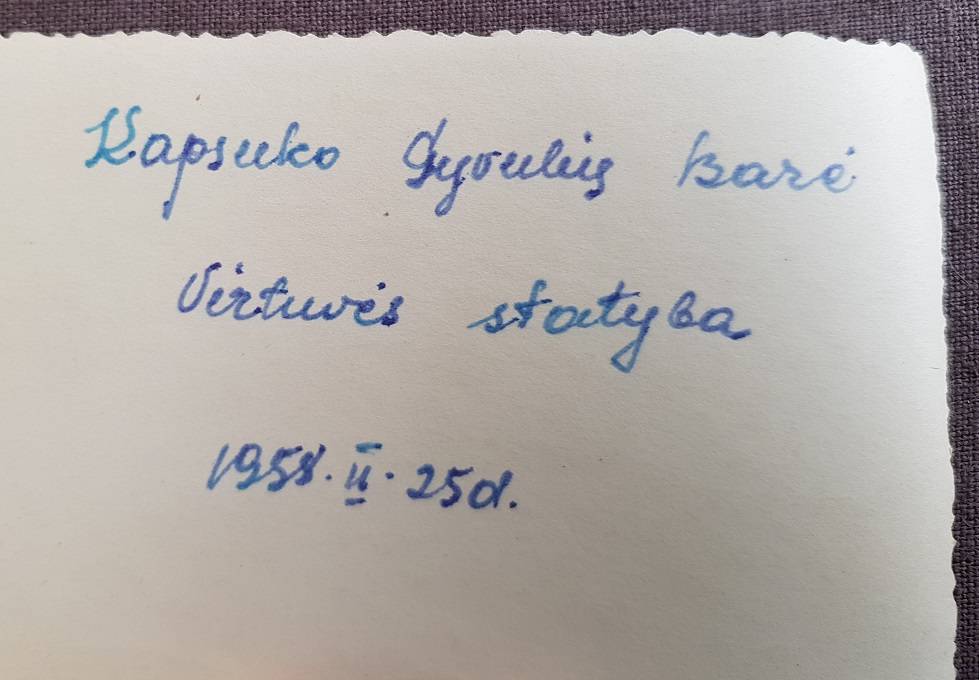 Kapsuko Gyvulių bazė
Virtuvės statyba
1958.II.25d.